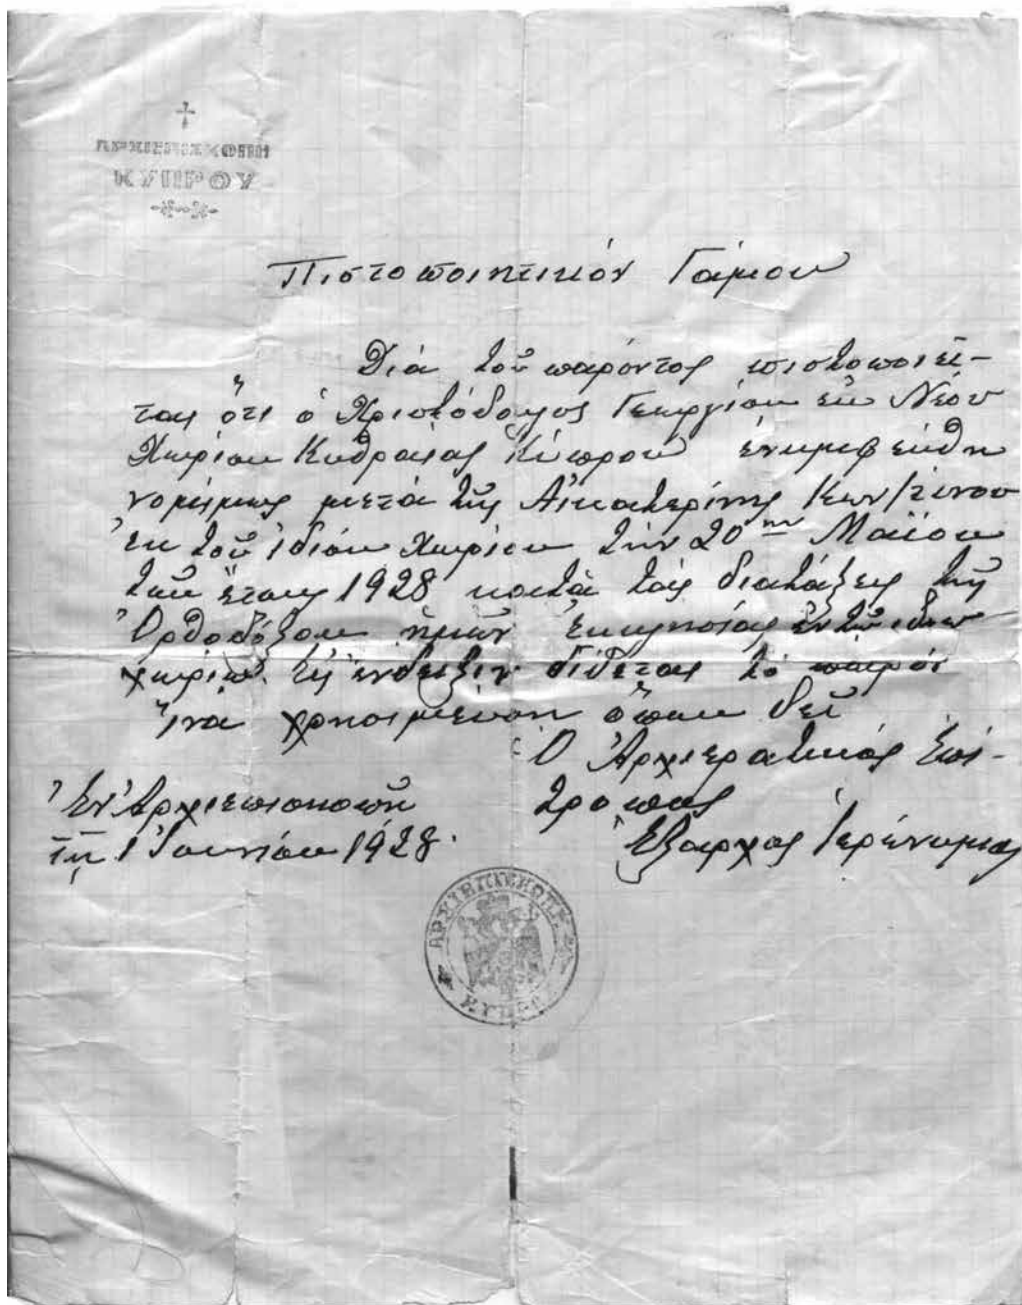 ΑΡΧΙΕΠΙΣΚΟΠΗ
ΚΥΠΡΟΥ
Πιστοποιητικόν Γάμου
Διά τοῦ παρόντος πιστοποιεῖ-
ται ὅτι ὁ Χριστόδουλος Γεωργίου ἐκ Νέου
Χωρίου Κυθραίας Κύπρου ἐνυμφεύθη
νομίμως μετά τῆς Αἰκατερίνης Κων/τίνου
ἐκ τοῦ ἰδίου Χωρίου τήν 20ην Μαΐου
τοῦ ἔτους 1928 κατά τάς διατάξεις τῆς
Ὀρθοδόξου ἡμῶν Ἐκκλησίας ἐν τῷ ἰδίῳ
χωρίῳ. Εἰς ἔνδειξιν δίδεται τό παρόν
ἵνα χρησιμεύσῃ ὅπου δεῖ
Ὁ Ἀρχιερατικός Ἐπί-
τροπος
Ἐν Ἀρχιεπισκοπῇ
τῇ 1 Ἰουνίου 1928.
Ἔξαρχος
ΑΡΧΙΕΠΙΣΚΟΠΗ
ΚΥΠΡΟΥ